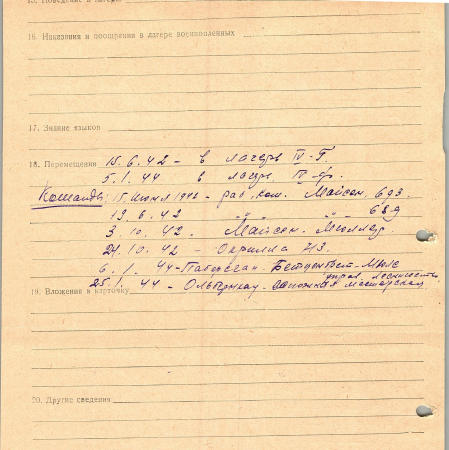 15. Поведение в лагере
16. Наказания и поощрения в лагере военнопленных
17. Знание языков
18. Перемещения 15.6.42 - в лагерь IV-Г.
5.1.44 в лагерь IV-ф.
Команды: 15 июня 1942 - раб. ком. Майсен 693
13.6.42 -"- -"- 689
3.10.42 Майсен. Мюллер.
24.10.42 - Окрилла 113.
6.1.44 -
25.1.44 - мастерская
19. Вложения в карточку
20. Другие сведения